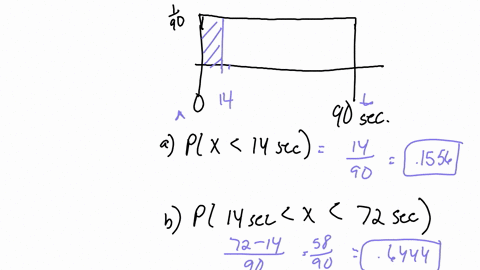 1/90
0 14 90 sec.
a b
a) P(X < 14 sec) = 14/90 = .1556
b) P(14 sec < X < 72 sec)
72-14/90 = 58/90 = .6444